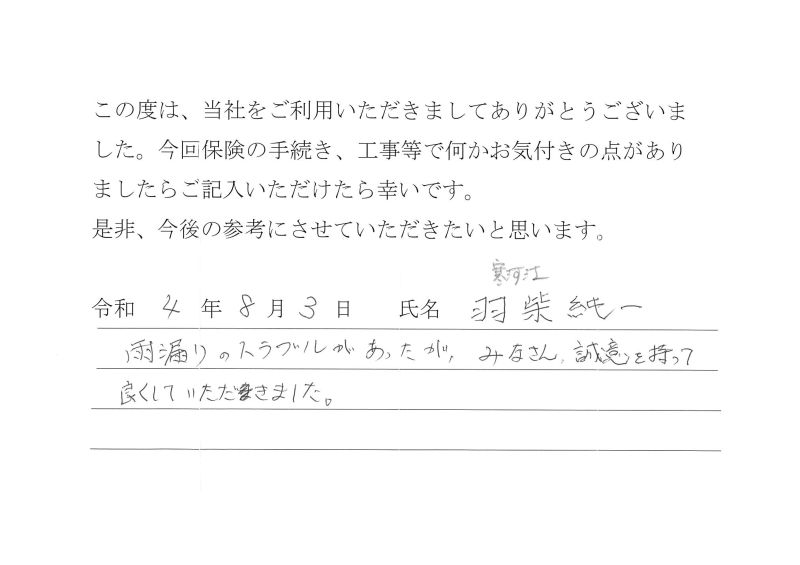 この度は、当社をご利用いただきましてありがとうございま
した。今回保険の手続き、工事等で何かお気付きの点があり
ましたらご記入いただけたら幸いです。
是非、今後の参考にさせていただきたいと思います。
寒河江
令和 4 年 8 月 3 日 氏名 羽柴純一
雨漏りのトラブルがあったが、みなさん、誠意を持って
良くしていただきました。